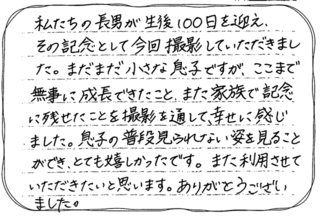 私たちの長男が生後100日を迎え、
その記念として今回撮影していただきまし
た。まだまだ小さな息子ですが、ここまで
無事に成長できたこと、また家族で記念
に残せたことを撮影を通して、幸せに感じ
ました。息子の普段見られない姿を見ること
ができ、とても嬉しかったです。また利用させて
いただきたいと思います。ありがとうござい
ました。